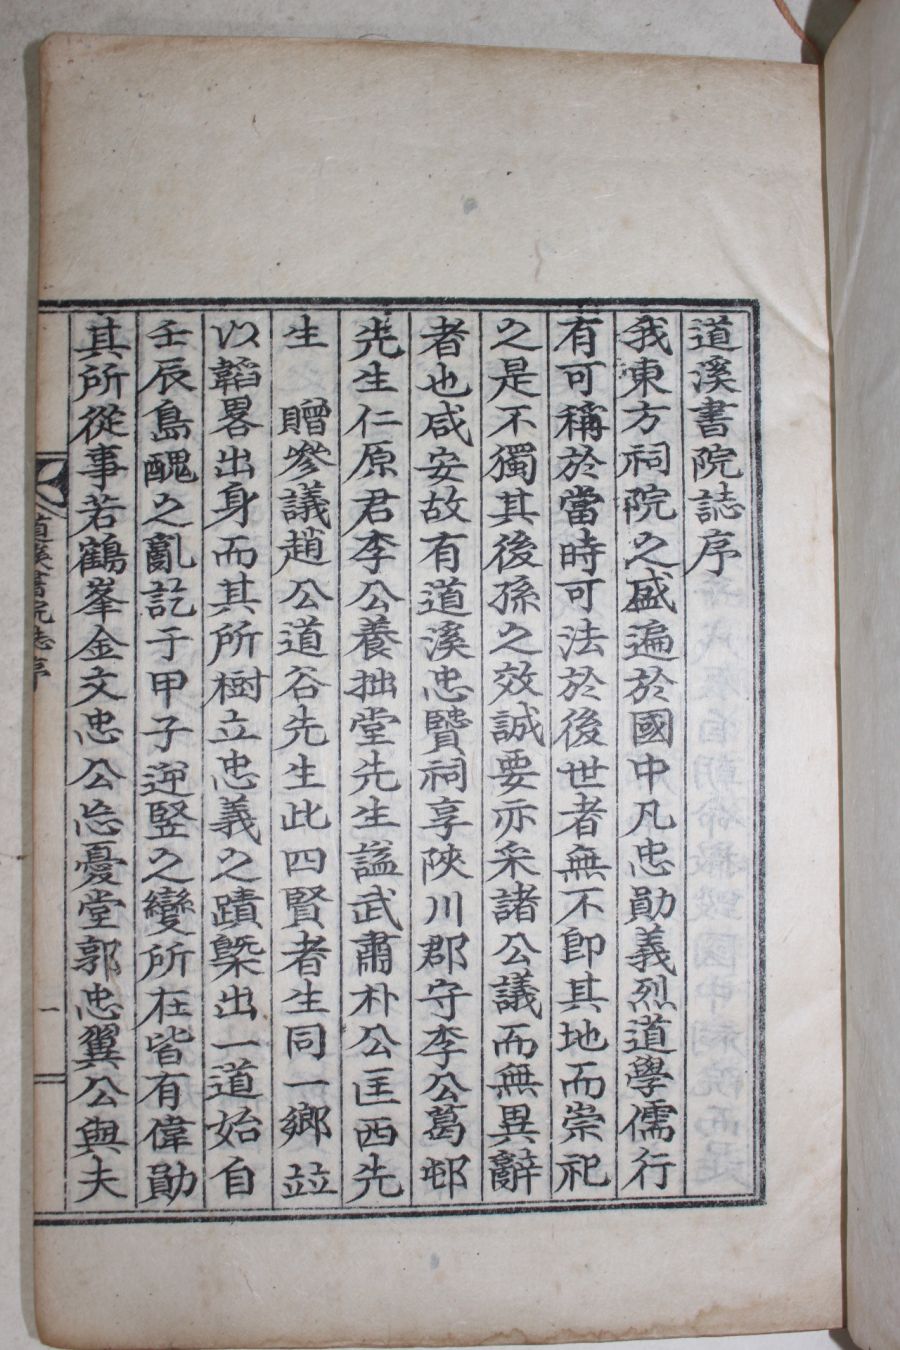 道溪書院誌序
我東方祠院之盛遍於國中凡忠勛義烈道學儒行
有可稱於當時可法於後世者無不卽其地而崇祀
之是不獨其後孫之效誠要亦采諸公議而無異辭
者也咸安故有道溪忠賢祠享陜川郡守李公葛邨
先生仁原君李公養拙堂先生諡武肅朴公匡西先
生　贈參議趙公道谷先生此四賢者生同一鄉竝
以韜畧出身而其所樹立忠義之蹟槩出一道始自
壬辰島醜之亂訖于甲子逆竪之變所在皆有偉勛
其所從事若鶴峯金文忠公忘憂堂郭忠翼公與夫
道溪書院誌序
一